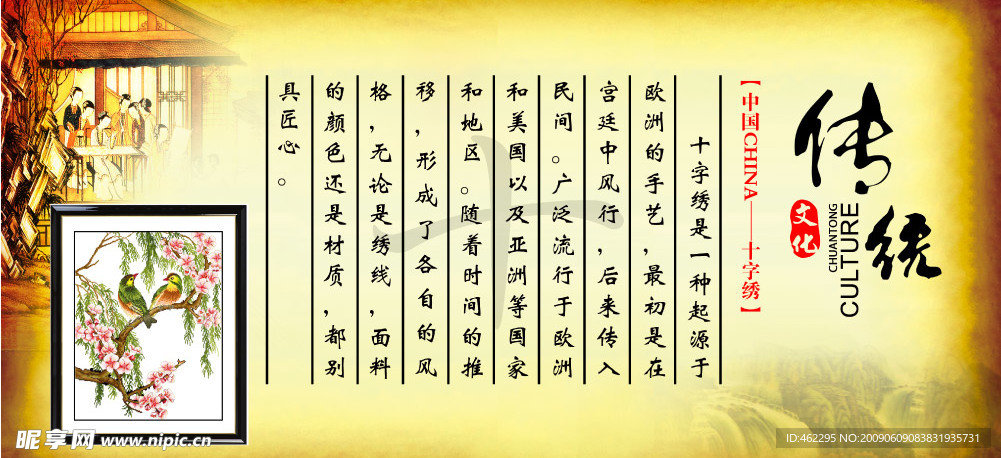 传统
文化
CULTURE
CHUANTONG
【中国CHINA——十字绣】
十字绣是一种起源于
欧洲的手艺,最初是在
宫廷中风行,后来传入
民间。广泛流行于欧洲
和美国以及亚洲等国家
和地区。随着时间的推
移,形成了各自的风
格,无论是绣线,面料
的颜色还是材质,都别
具匠心。
十
昵享网 www.nipic.cn
ID:462295 NO:20090609083831935731